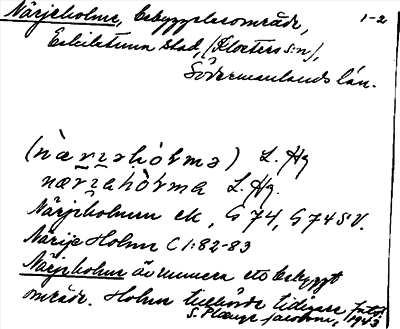 Närjeholme, bebyggelseområde, 1-2
Eskilstuna stad, (Klosters sn),
Södermanlands län.
(nærɪ̯əhólmə) L. Hg
nærɪ̯əhòlma L. Hg.
Närjeholmen ek, G 74, G 74 SV.
Närije Holm C 1:82-83
Närjeholme är numera ett bebyggt
område. Holm tillhörde tidigare Fors
S. Plange Jacobson, 1943